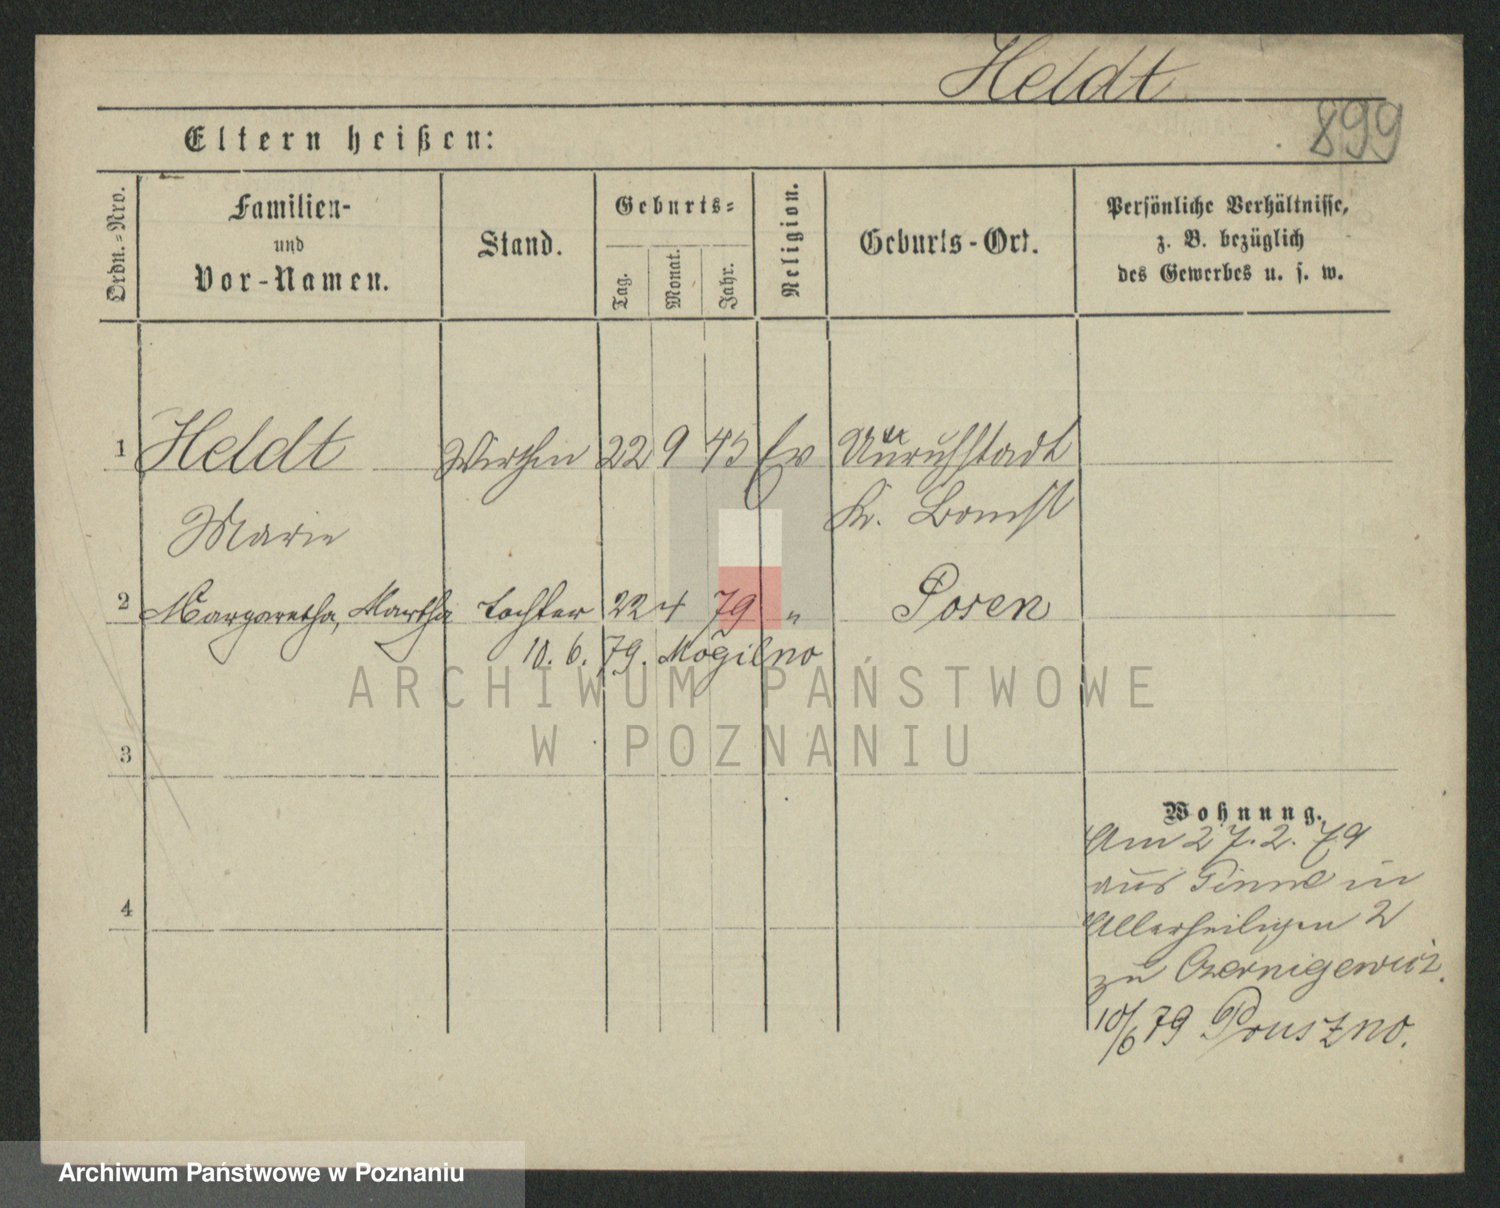 Heldt
899
Eltern heißen:
Ordn.=Nro.
Familien-
und
Vor-Namen.
Stand.
Geburts=
Tag.
Monat.
Jahr.
Religion.
Geburts-Ort.
Persönliche Verhältnisse,
z. B. bezüglich
des Gewerbes u. s. w.
1 Heldt Wirthin 22 9 45 Ev Unruhstadt
Marie Kr. Bomst
2 Margaretha, Martha Tochter 22 4 79 " Posen
10. 6. 79. Mogilno
ARCHIWUM PAŃSTWOWE
W POZNANIU
3
Wohnung.
Am 27. 2. 79
aus Pinne in
4
Allerheiligen 2
zu
10/6 79 Pruszno.
Archiwum Państwowe w Poznaniu